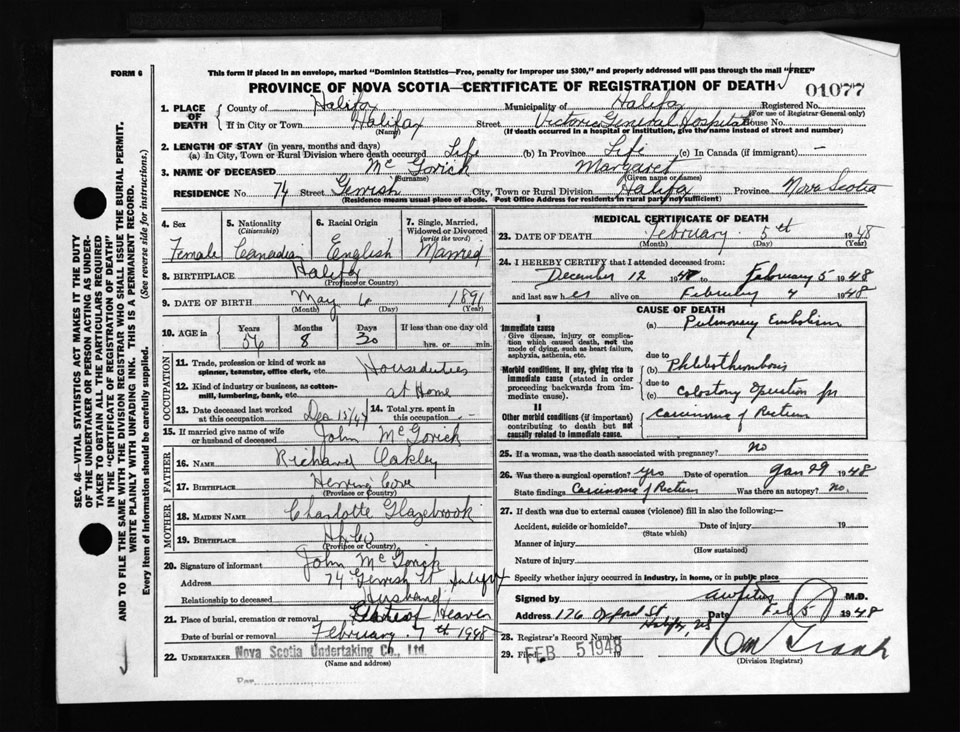 FORM 6
This form if placed in an envelope, marked "Dominion Statistics—Free, penalty for improper use $300," and properly addressed will pass through the mail "FREE"
PROVINCE OF NOVA SCOTIA—CERTIFICATE OF REGISTRATION OF DEATH
01077
1. PLACE OF DEATH
County of Halifax Municipality of Halifax Registered No.
(For use of Registrar General only)
If in City or Town Halifax Street Victoria General Hospital House No.
(Name) (If death occurred in a hospital or institution, give the name instead of street and number)
2. LENGTH OF STAY (in years, months and days)
(a) In City, Town or Rural Division where death occurred Life (b) In Province Life (c) In Canada (if immigrant) —
3. NAME OF DECEASED Mc Gorich Margaret
(Surname) (Given name or names)
RESIDENCE No 74 Street Gerrish City, Town or Rural Division Halifax Province Nova Scotia
(Residence means usual place of abode. Post Office Address for residents in rural parts not sufficient)
4. Sex Female
5. Nationality (Citizenship) Canadian
6. Racial Origin English
7. Single, Married, Widowed or Divorced (write the word) Married
8. BIRTHPLACE Halifax
(Province or Country)
9. DATE OF BIRTH May 6 1891
(Month) (Day) (Year)
10. AGE in Years 56 Months 8 Days 30 If less than one day old hrs. or min.
OCCUPATION
11. Trade, profession or kind of work as spinner, teamster, office clerk, etc. Houseduties
12. Kind of industry or business, as cotton-mill, lumbering, bank, etc. at Home
13. Date deceased last worked at this occupation Dec 15/47
14. Total yrs. spent in this occupation —
15. If married give name of wife or husband of deceased John McGorich
FATHER
16. NAME Richard Oakley
17. BIRTHPLACE Herring Cove
(Province or Country)
MOTHER
18. MAIDEN NAME Charlotte Glazebrook
19. BIRTHPLACE
(Province or Country)
20. Signature of informant John McGorich
Address 74 Gerrish St Halifax
Relationship to deceased Husband
21. Place of burial, cremation or removal Gate of Heaven
Date of burial or removal February 7th 1948
22. UNDERTAKER Nova Scotia Undertaking Co., Ltd.
(Name and address)
Per
MEDICAL CERTIFICATE OF DEATH
23. DATE OF DEATH February 5th 1948
(Month) (Day) (Year)
24. I HEREBY CERTIFY that I attended deceased from:
December 12 1947 to February 5 1948
and last saw her alive on February 4 1948
CAUSE OF DEATH
I
Immediate cause
Give disease, injury or complication which caused death, not the mode of dying, such as heart failure, asphyxia, asthenia, etc.
(a) Pulmonary Embolism
due to
Morbid conditions, if any, giving rise to immediate cause (stated in order proceeding backwards from immediate cause).
(b) Phlebothrombosis
due to
(c) Colostomy Operation for
carcinoma of Rectum
II
Other morbid conditions (if important) contributing to death but not causally related to immediate cause.
25. If a woman, was the death associated with pregnancy? no
26. Was there a surgical operation? Yes Date of operation Jan 29 1948
State findings Carcinoma of Rectum Was there an autopsy? no.
27. If death was due to external causes (violence) fill in also the following:—
Accident, suicide or homicide? Date of injury 19
(State which)
Manner of injury
(How sustained)
Nature of injury
Specify whether injury occurred in industry, in home, or in public place
Signed by M.D.
Address 176 Oxford St Date Feb 5 1948
Halifax, NS
28. Registrar's Record Number
29. Filed FEB 5 1948 19
(Division Registrar)
SEC. 46—VITAL STATISTICS ACT MAKES IT THE DUTY
OF THE UNDERTAKER OR PERSON ACTING AS UNDER-
TAKER TO OBTAIN ALL THE PARTICULARS REQUIRED
IN THE "CERTIFICATE OF REGISTRATION OF DEATH"
AND TO FILE THE SAME WITH THE DIVISION REGISTRAR WHO SHALL ISSUE THE BURIAL PERMIT.
WRITE PLAINLY WITH UNFADING INK. THIS IS A PERMANENT RECORD.
Every item of information should be carefully supplied. (See reverse side for instructions.)